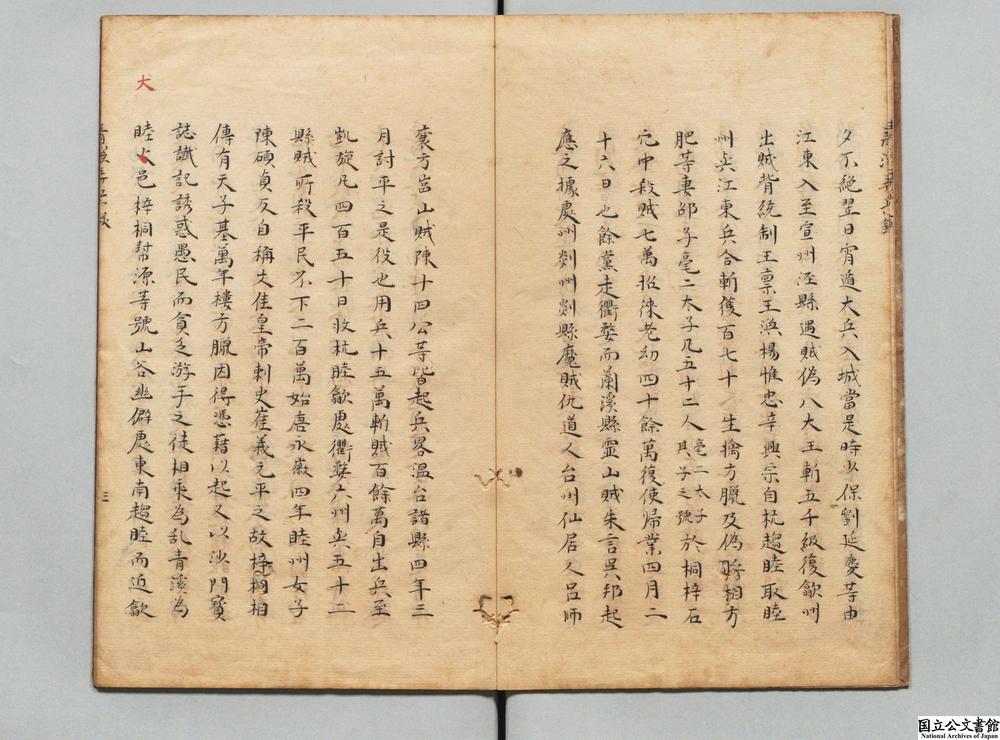 夕不絶翌日宵遁大兵入城當是時少保劉延慶等由
江東入至宣州涇縣遇賊偽八大王斬五千級復歙州
出賊背統制王禀王渙楊惟忠辛興宗自杭趨睦取睦
州與江東兵合斬獲百七十 生擒方臘及偽將相方
肥等妻邵子亳二太子凡五十二人亳二太子其子之號於桐梓石
穴中殺賊七萬招徠老幼四十餘萬復使歸業四月二
十六日也餘黨走衢婺而蘭溪縣靈山賊朱言吳邦起
應之據處州剡州剡縣魔賊仇道人台州仙居人吕師
褒方岩山賊陳十四公等皆起兵畧温台諸縣四年三
月討平之是役也用兵十五萬斬賊百餘萬自出兵至
凱旋凡四百五十日收杭睦歙處衢婺六州與五十二
縣賊所殺平民不下二百萬始唐永徽四年睦州女子
陳碩貞反自稱文佳皇帝刺史崔義元平之故梓桐相
傳有天子基萬年樓方臘因得憑藉以起又以沙門寳
誌讖記誘惑愚民而貧乏游手之徒相乘為亂青溪為
睦大邑梓桐幇源等號山谷幽僻處東南趨睦而近歙
大
三
国立公文書館
National Archives of Japan